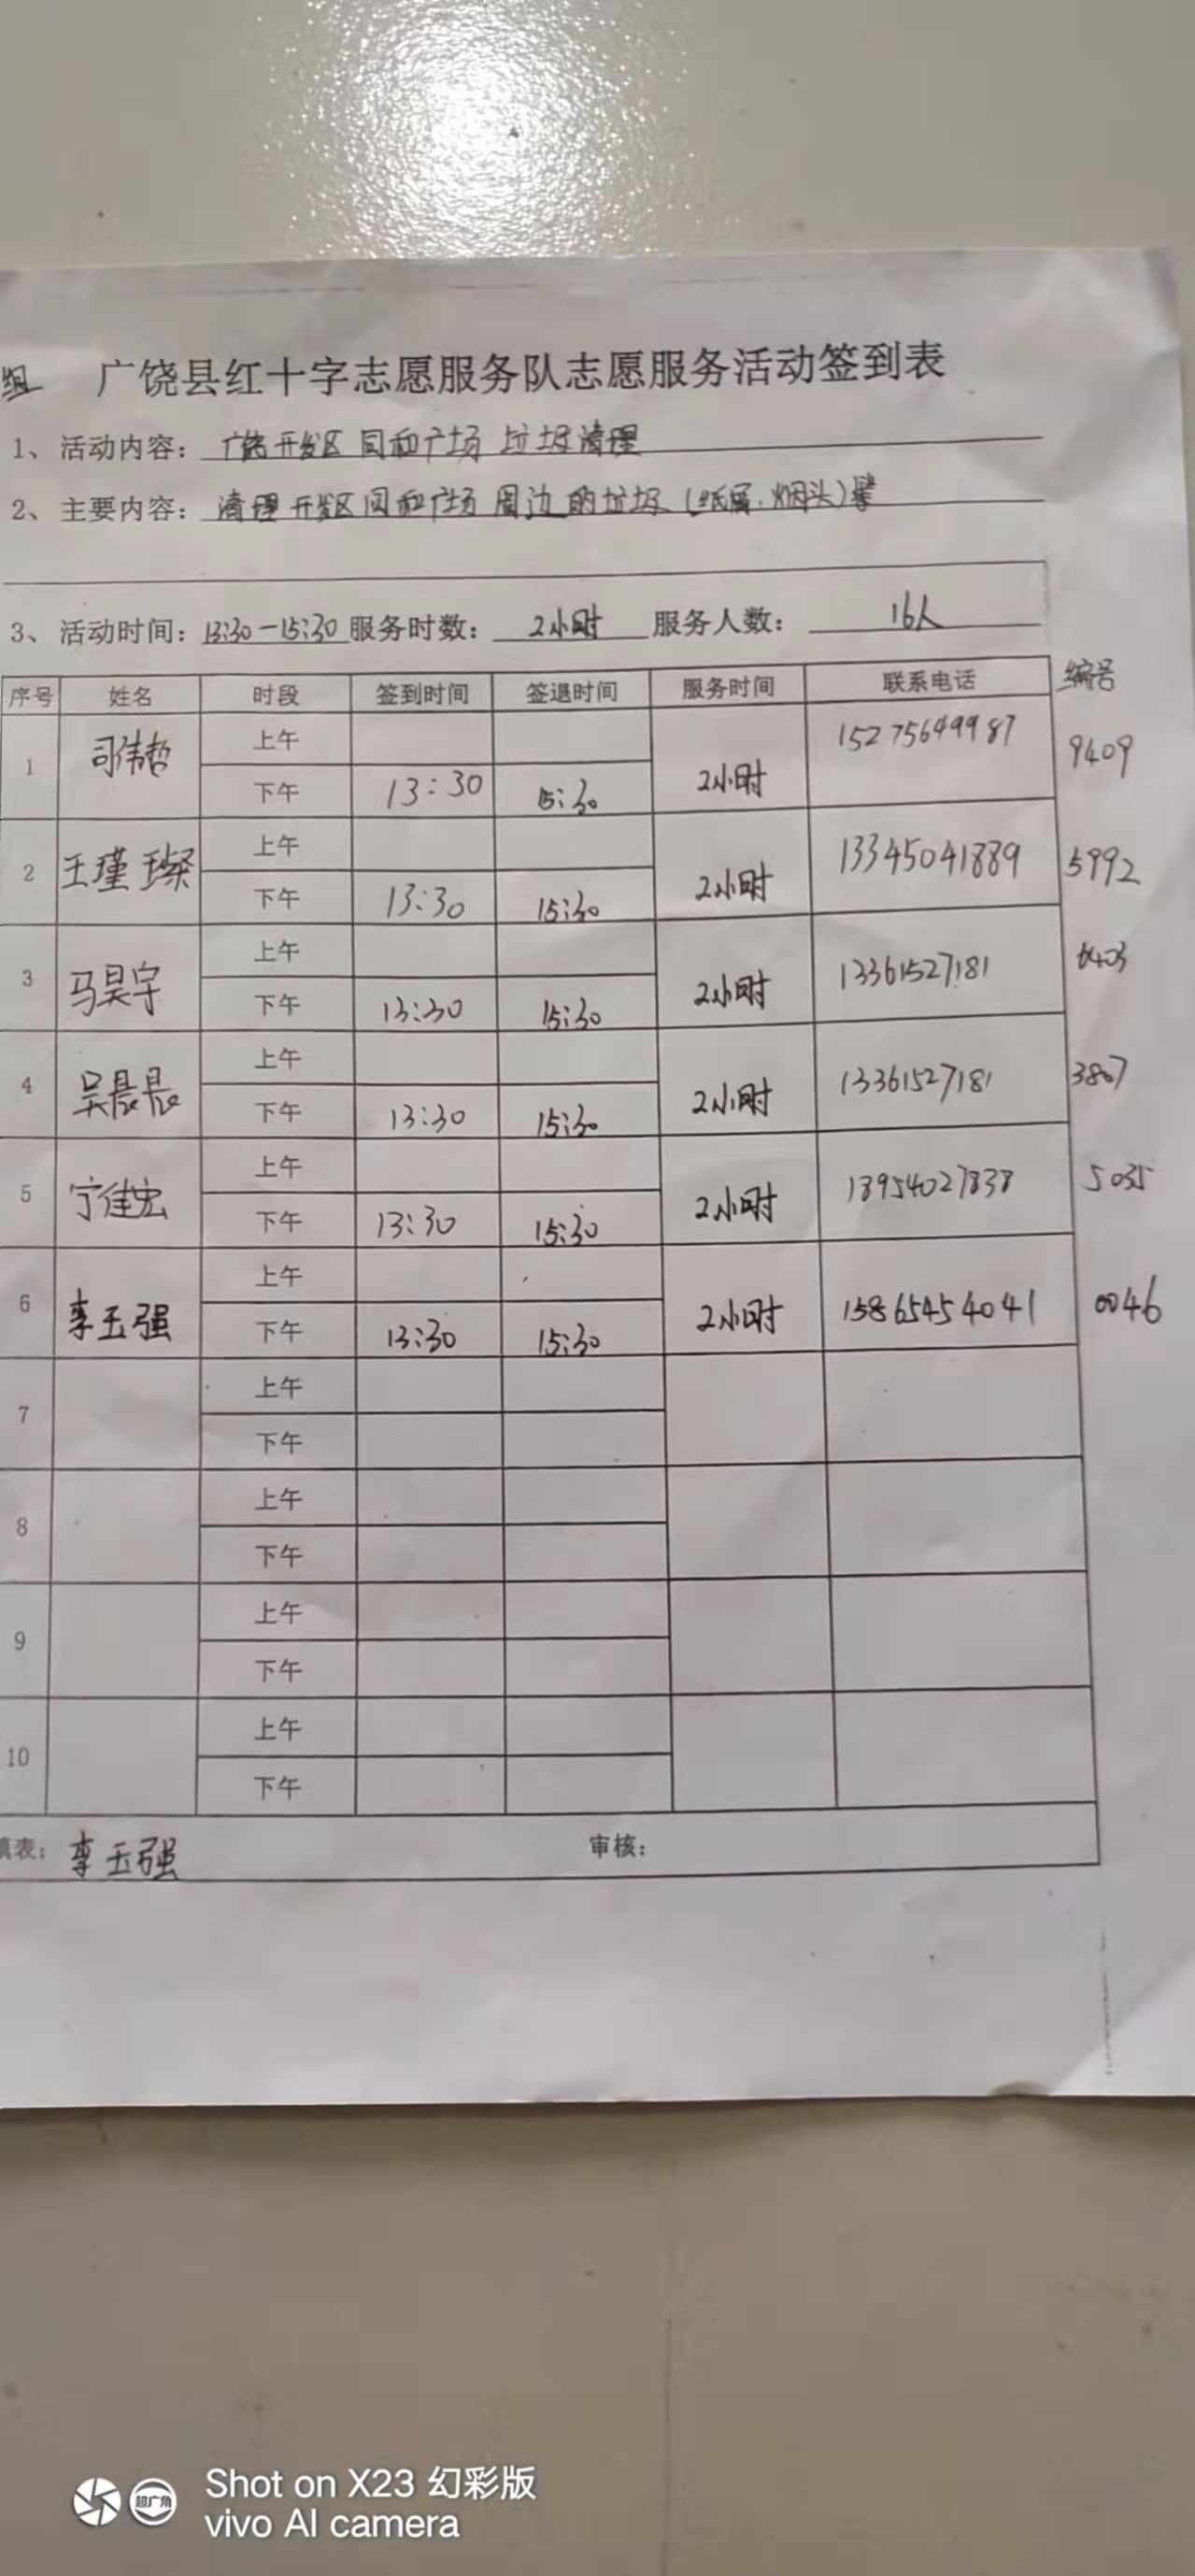 组 广饶县红十字志愿服务队志愿服务活动签到表
1、活动内容：广饶开发区 同和广场 垃圾清理
2、主要内容：清理开发区同和广场 周边的垃圾（纸屑、烟头）等
3、活动时间：13:30-15:30 服务时数：2小时 服务人数：16人
序号 姓名 时段 签到时间 签退时间 服务时间 联系电话 编号
1 司伟哲 上午 2小时 15275649987 9409
下午 13:30 15:30
2 王瑾璨 上午 2小时 13345041889 5992
下午 13:30 15:30
3 马昊宇 上午 2小时 13361527181
下午 13:30 15:30
4 吴晨晨 上午 2小时 13361527181 3807
下午 13:30 15:30
5 宁佳宏 上午 2小时 18954027838 5035
下午 13:30 15:30
6 李玉强 上午 2小时 15865454041 0046
下午 13:30 15:30
7 上午
下午
8 上午
下午
9 上午
下午
10 上午
下午
填表：李玉强 审核：
超广角
Shot on X23 幻彩版
vivo AI camera